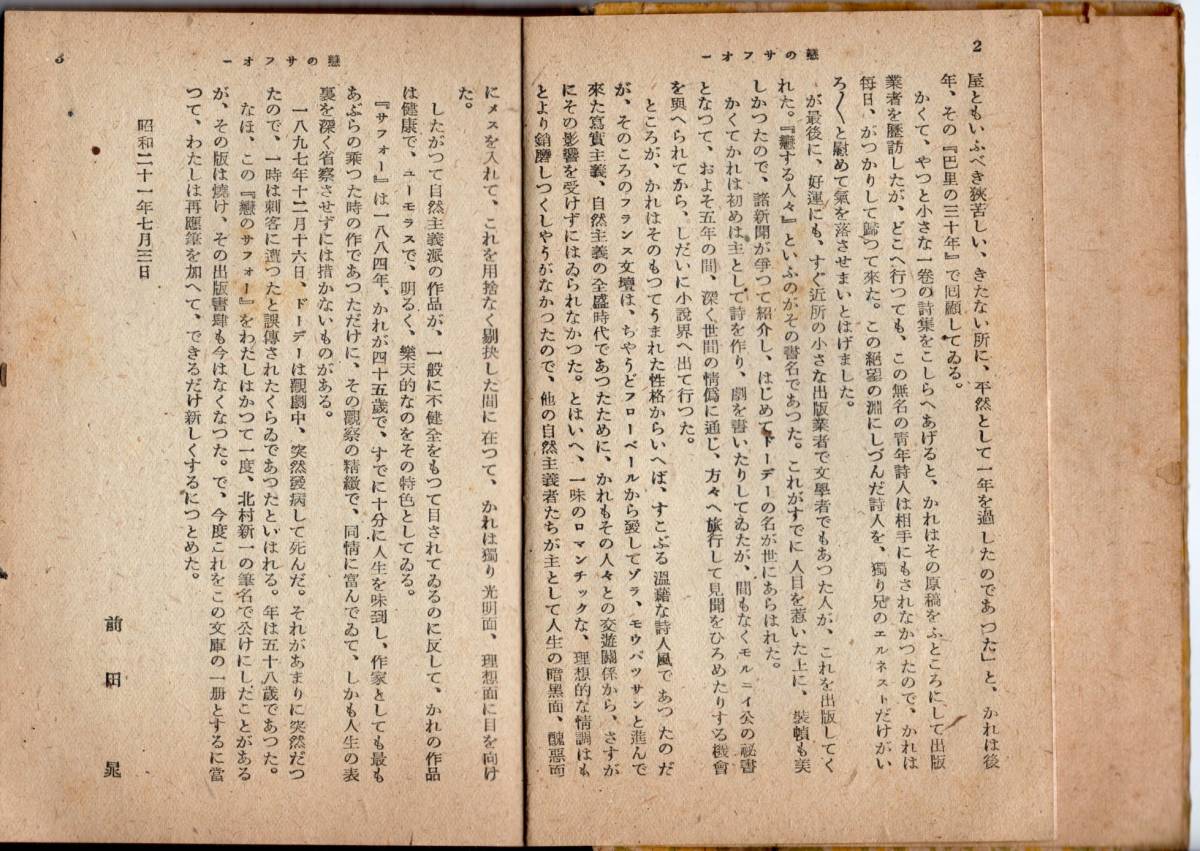 2
戀のサフオー
屋ともいふべき狹苦しい、きたない所に、平然として一年を過したのであつた」と、かれは後
年、その『巴里の三十年』で回顧してゐる。
かくて、やつと小さな一卷の詩集をこしらへあげると、かれはその原稿をふところにして出版
業者を歷訪したが、どこへ行つても、この無名の青年詩人は相手にもされなかつたので、かれは
每日、がつかりして歸つて來た。この絕望の淵にしづんだ詩人を、獨り兄のエルネストだけがい
ろ〱と慰めて氣を落させまいとはげました。
が最後に、好運にも、すぐ近所の小さな出版業者で文學者でもあつた人が、これを出版してく
れた。『戀する人々』といふのがその書名であつた。これがすでに人目を惹いた上に、裝幀も美
しかつたので、諸新聞が爭つて紹介し、はじめてドーデーの名が世にあらはれた。
かくてかれは初めは主として詩を作り、劇を書いたりしてゐたが、間もなくモルニイ公の祕書
となつて、およそ五年の間、深く世間の情僞に通じ、方々へ旅行して見聞をひろめたりする機會
を與へられてから、しだいに小說界へ出て行つた。
ところが、かれはそのもつてうまれた性格からいへば、すこぶる溫藉な詩人風であつたのだ
が、そのころのフランス文壇は、ちやうどフローベールから發してゾラ、モウパツサンと進んで
來た寫實主義、自然主義の全盛時代であつたために、かれもその人々との交遊關係から、さすが
にその影響を受けずにはゐられなかつた。とはいへ、一味のロマンチックな、理想的な情調はも
とより銷磨しつくしやうがなかつたので、他の自然主義者たちが主として人生の暗黑面、醜惡面
3
戀のサフオー
にメスを入れて、これを用捨なく剔抉した間に在つて、かれは獨り光明面、理想面に目を向け
た。
したがつて自然主義派の作品が、一般に不健全をもつて目されてゐるのに反して、かれの作品
は健康で、ユーモラスで、明るく、樂天的なのをその特色としてゐる。
『サフォー』は一八八四年、かれが四十五歲で、すでに十分に人生を味到し、作家としても最も
あぶらの乘つた時の作であつただけに、その觀察の精緻で、同情に富んでゐて、しかも人生の表
裏を深く省察させずには措かないものがある。
一八九七年十二月十六日、ドーデーは觀劇中、突然發病して死んだ。それがあまりに突然だつ
たので、一時は刺客に遭つたと誤傳されたくらゐであつたといはれる。年は五十八歲であつた。
なほ、この『戀のサフォー』をわたしはかつて一度、北村新一の筆名で公けにしたことがある
が、その版は燒け、その出版書肆も今はなくなつた。で、今度これをこの文庫の一册とするに當
つて、わたしは再應筆を加へて、できるだけ新しくするにつとめた。
昭和二十一年七月三日
前田晁